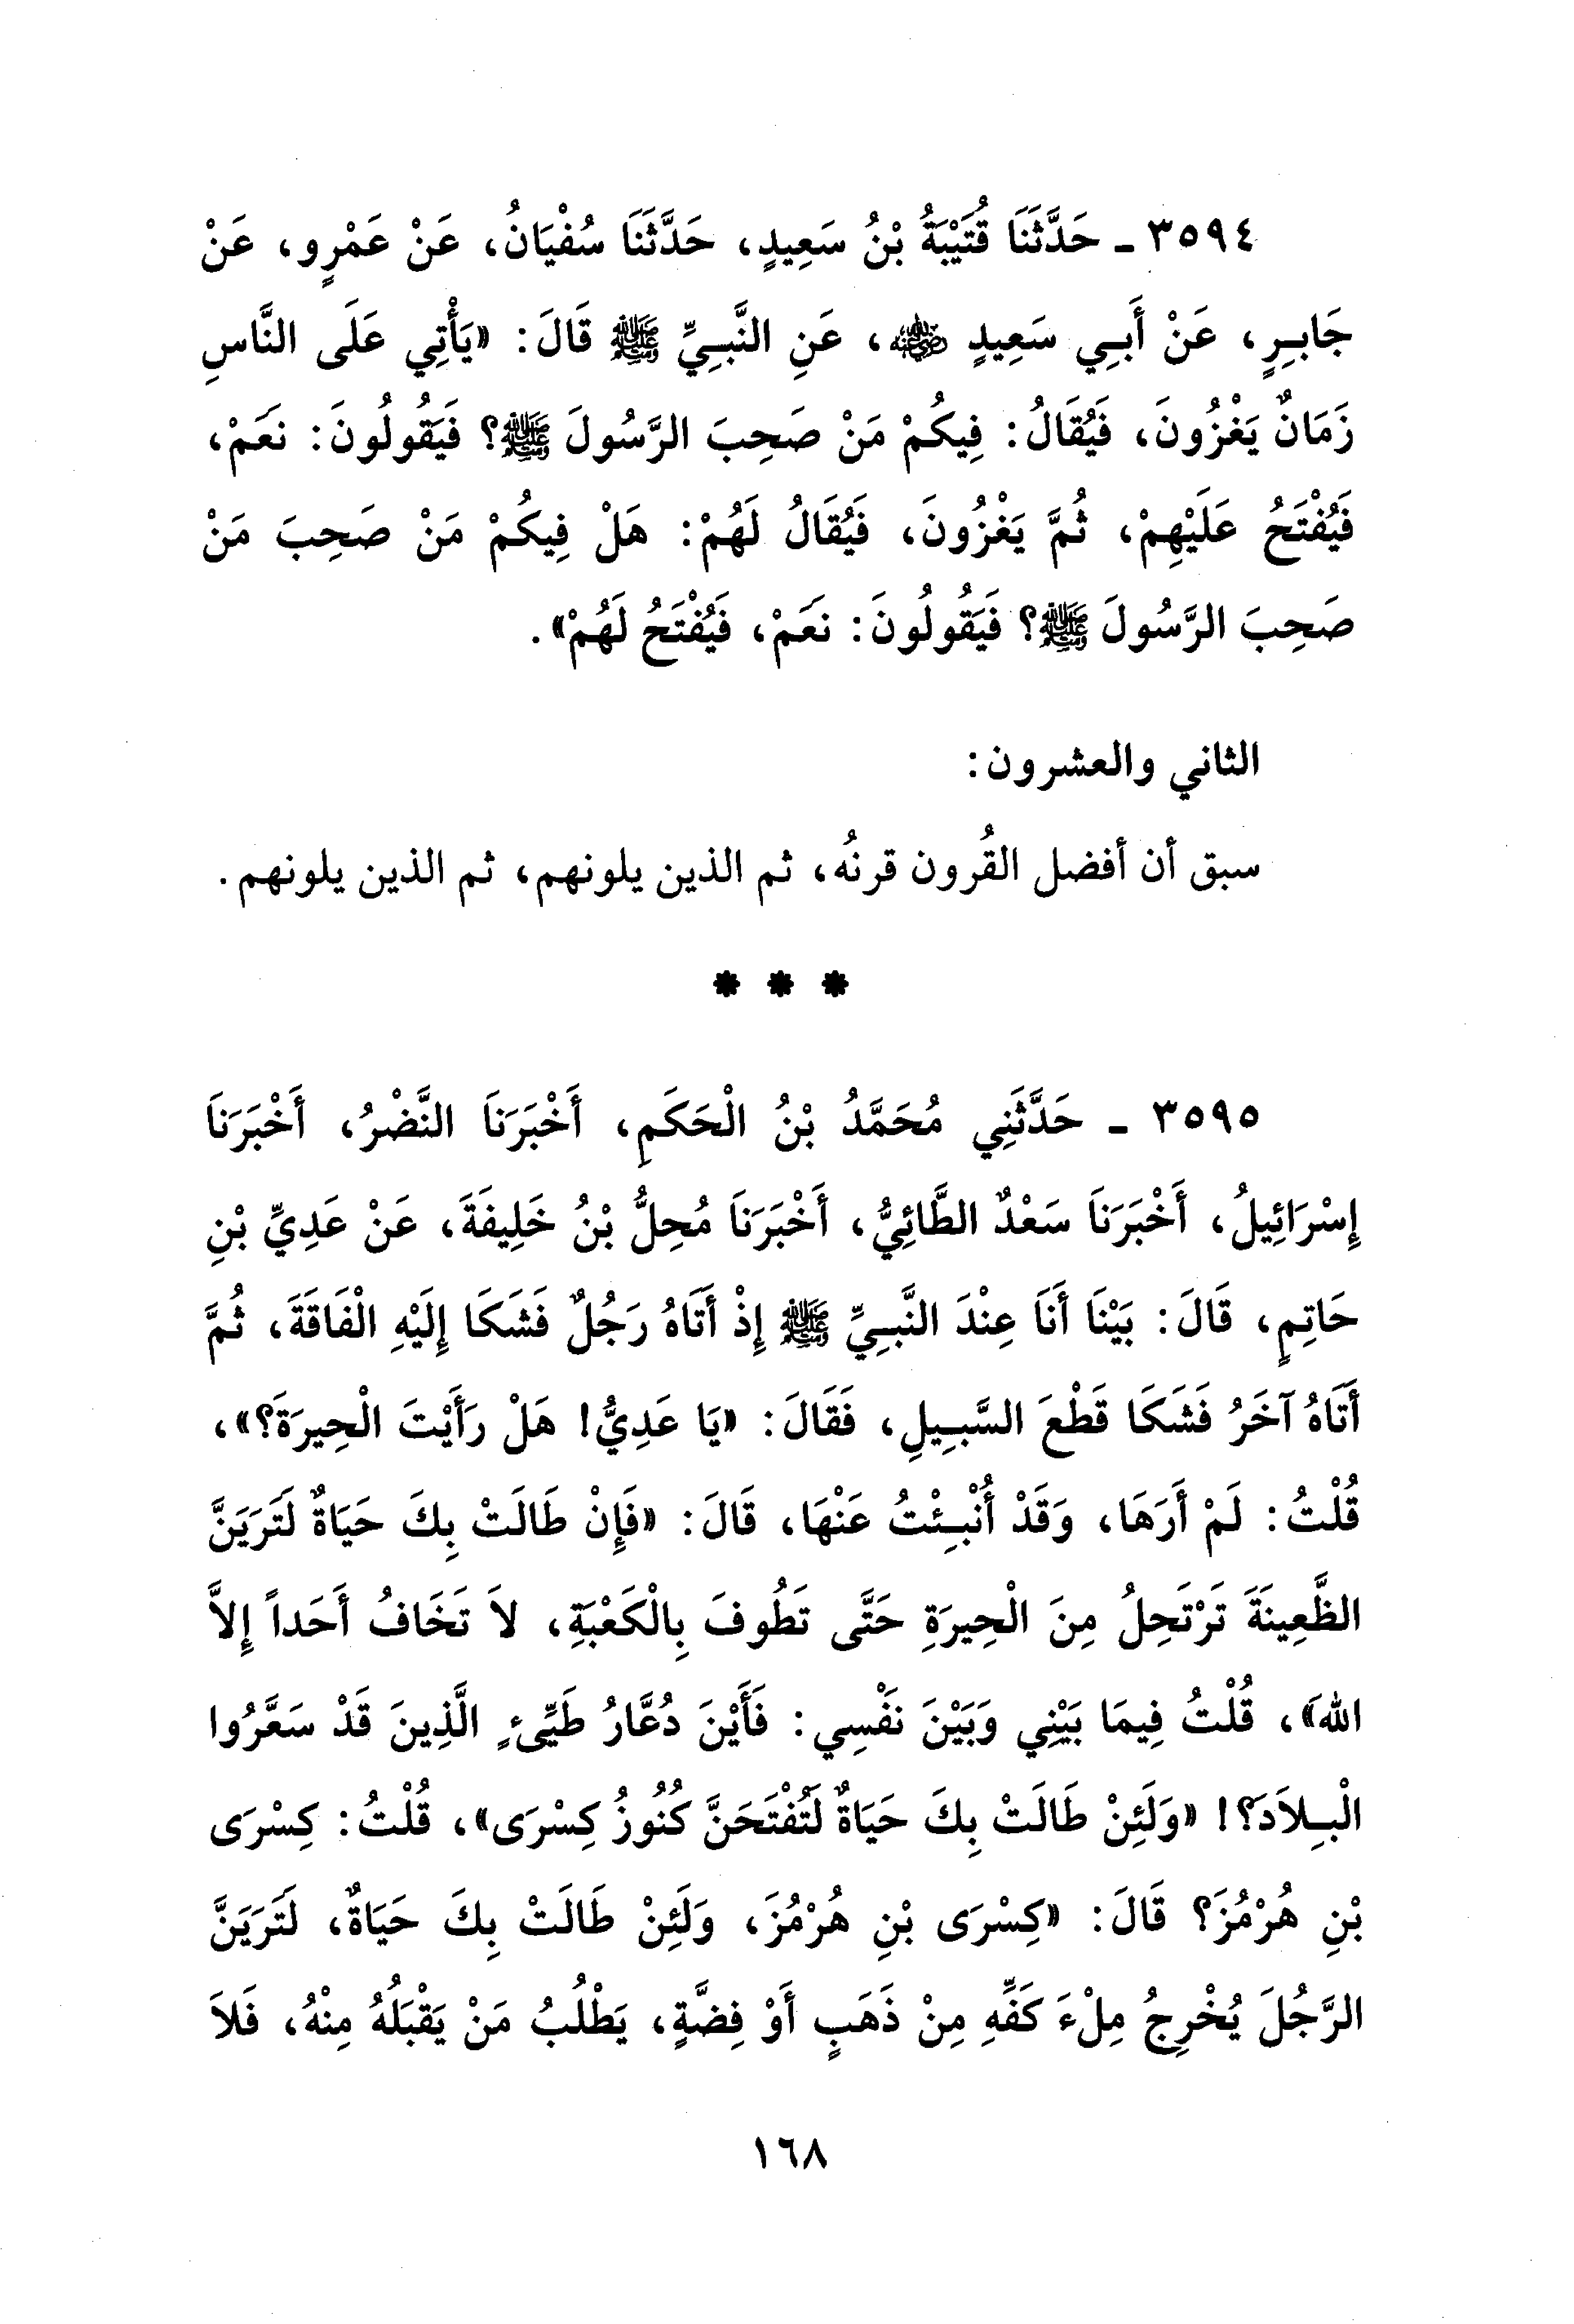 ٣٥٩٤ ـ حَدَّثَنَا قُتَيْبَةُ بْنُ سَعِيدٍ، حَدَّثَنَا سُفْيَانُ، عَنْ عَمْرٍو، عَنْ
جَابِرٍ، عَنْ أَبِي سَعِيدٍ رضي الله عنه، عَنِ النَّبِيِّ ﷺ قَالَ: «يَأْتِي عَلَى النَّاسِ
زَمَانٌ يَغْزُونَ، فَيُقَالُ: فِيكُمْ مَنْ صَحِبَ الرَّسُولَ ﷺ؟ فَيَقُولُونَ: نَعَمْ،
فَيُفْتَحُ عَلَيْهِمْ، ثُمَّ يَغْزُونَ، فَيُقَالُ لَهُمْ: هَلْ فِيكُمْ مَنْ صَحِبَ مَنْ
صَحِبَ الرَّسُولَ ﷺ؟ فَيَقُولُونَ: نَعَمْ، فَيُفْتَحُ لَهُمْ».
الثاني والعشرون:
سبق أن أفضل القُرون قرنُه، ثم الذين يلونهم، ثم الذين يلونهم.
* * *
٣٥٩٥ ـ حَدَّثَنِي مُحَمَّدُ بْنُ الْحَكَمِ، أَخْبَرَنَا النَّضْرُ، أَخْبَرَنَا
إِسْرَائِيلُ، أَخْبَرَنَا سَعْدٌ الطَّائِيُّ، أَخْبَرَنَا مُحِلُّ بْنُ خَلِيفَةَ، عَنْ عَدِيِّ بْنِ
حَاتِمٍ، قَالَ: بَيْنَا أَنَا عِنْدَ النَّبِيِّ ﷺ إِذْ أَتَاهُ رَجُلٌ فَشَكَا إِلَيْهِ الْفَاقَةَ، ثُمَّ
أَتَاهُ آخَرُ فَشَكَا قَطْعَ السَّبِيلِ، فَقَالَ: «يَا عَدِيُّ! هَلْ رَأَيْتَ الْحِيرَةَ؟»،
قُلْتُ: لَمْ أَرَهَا، وَقَدْ أُنْبِئْتُ عَنْهَا، قَالَ: «فَإِنْ طَالَتْ بِكَ حَيَاةٌ لَتَرَيَنَّ
الظَّعِينَةَ تَرْتَحِلُ مِنَ الْحِيرَةِ حَتَّى تَطُوفَ بِالْكَعْبَةِ، لاَ تَخَافُ أَحَداً إِلاَّ
اللهَ»، قُلْتُ فِيمَا بَيْنِي وَبَيْنَ نَفْسِي: فَأَيْنَ دُعَّارُ طَيِّىءٍ الَّذِينَ قَدْ سَعَّرُوا
الْبِلاَدَ؟! «وَلَئِنْ طَالَتْ بِكَ حَيَاةٌ لَتُفْتَحَنَّ كُنُوزُ كِسْرَى»، قُلْتُ: كِسْرَى
بْنِ هُرْمُزَ؟ قَالَ: «كِسْرَى بْنِ هُرْمُزَ، وَلَئِنْ طَالَتْ بِكَ حَيَاةٌ، لَتَرَيَنَّ
الرَّجُلَ يُخْرِجُ مِلْءَ كَفِّهِ مِنْ ذَهَبٍ أَوْ فِضَّةٍ، يَطْلُبُ مَنْ يَقْبَلُهُ مِنْهُ، فَلاَ
١٦٨